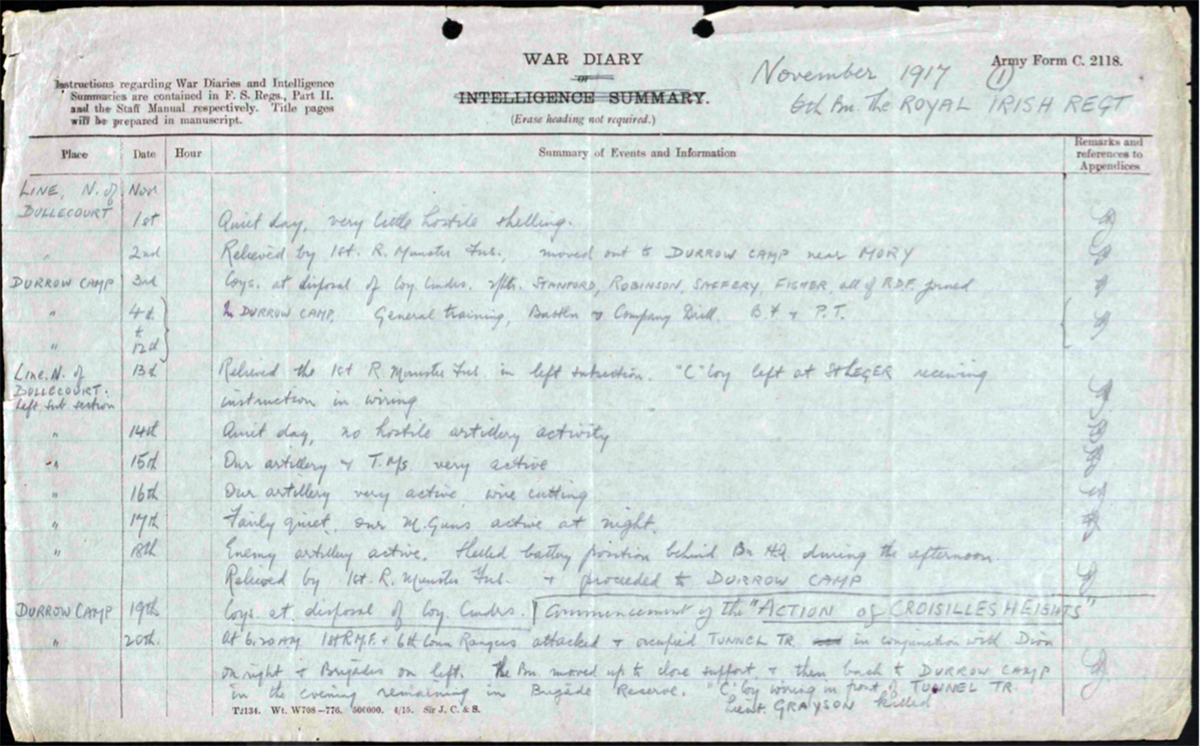 WAR DIARY
or
INTELLIGENCE SUMMARY.
(Erase heading not required.)
Army Form C. 2118.
Instructions regarding War Diaries and Intelligence
Summaries are contained in F. S. Regs., Part II.
and the Staff Manual respectively. Title pages
will be prepared in manuscript.
November 1917 (1)
6th Bn. The ROYAL IRISH REGT
Place Date Hour Summary of Events and Information Remarks and references to Appendices
LINE, N. of Nov
BULLECOURT 1st Quiet day, very little hostile shelling.
" 2nd Relieved by 1st. R. Munster Fus., moved out to DURROW CAMP near MORY
DURROW CAMP 3rd Coys. at disposal of Coy Cmdrs. 2/Lts. STANFORD, ROBINSON, SAFFERY, FISHER, all of R.D.F. joined
" 4th In DURROW CAMP. General training, Battln & Company Drill. B.F. & P.T.
to
" 12th
Line, N. of 13th Relieved the 1st R. Munster Fus. in left subsection. "C" Coy left at ST LEGER receiving
BULLECOURT.
Left Sub section instruction in wiring
" 14th Quiet day, no hostile artillery activity
" 15th Our artillery & T.Ms. very active
" 16th Our artillery very active wire cutting
" 17th Fairly quiet. Our M. Guns active at night.
" 18th Enemy artillery active. Shelled battery position behind Bn HQ during the afternoon.
Relieved by 1st. R. Munster Fus. & proceeded to DURROW CAMP
DURROW CAMP 19th Coys. at disposal of Coy Cmdrs. Commencement of the "ACTION of CROISILLES HEIGHTS"
" 20th. At 6.20 AM 1st R.M.F. & 6th Conn Rangers attacked & occupied TUNNEL TR. in conjunction with Divn
on right & Brigades on left. The Bn. moved up to close support & then back to DURROW CAMP
in the evening remaining in Brigade Reserve. "C" Coy wiring in front of TUNNEL TR
Lieut. GRAYSON killed
T2134. Wt. W708—776. 500000. 4/15. Sir J. C. & S.